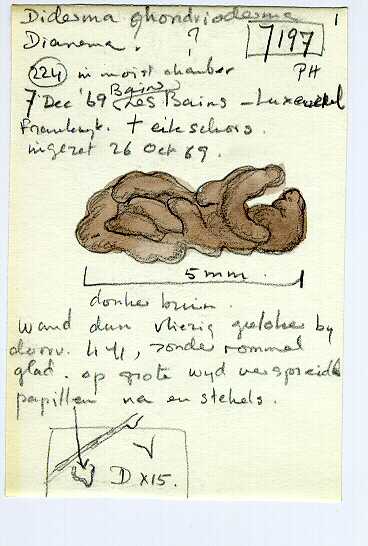 Diderma chondrioderma 1
Dianema. ?
7197
PH
224 in moist chamber
7 Dec '69 Bains Les Bains - Luxeuil
Frankryk. † eikschors.
ingezet 26 Oct 69.
5 mm.
donker bruin.
wand dun vliezig gelykend by
doorv. , zonder rommel
glad. op grote wyd verspreide
papillen na en stekels.
D x 15.